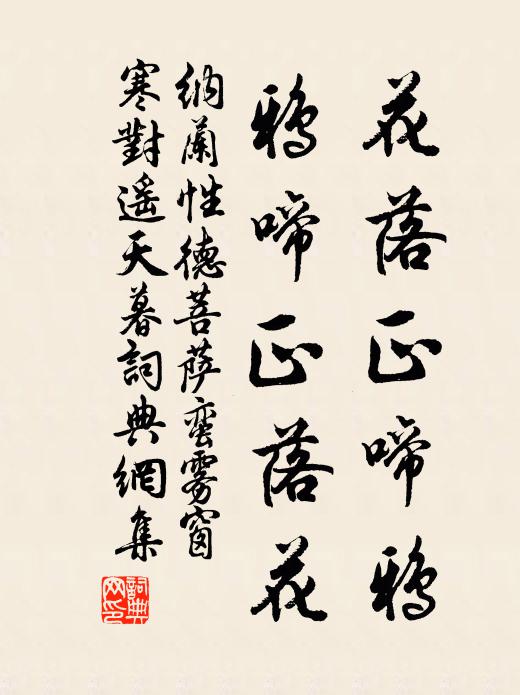 花落正啼鴉
鴉啼正落花
納蘭性德菩薩蠻霧窗
寒對遙天暮詞典網集
詞典網印